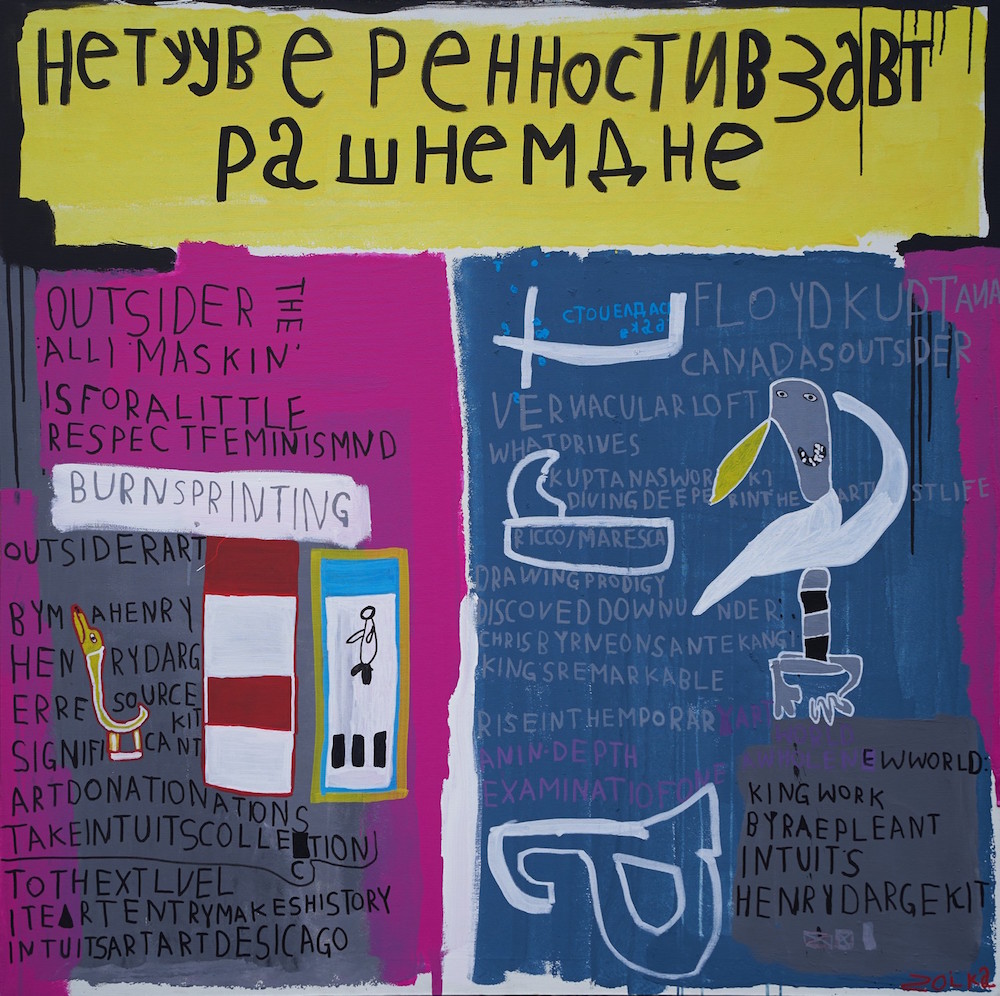 нетууверенностивзавт
рашнемдне
OUTSIDER THE
ALLI'MASKIN'
ISFORALITTLE
RESPECTFEMINISMND
BURNSPRINTING
OUTSIDERART
BYM AHENRY
HEN RYDARG
ERRE SOURCE
KIT
SIGNIFI CANT
ARTDONATIONATIONS
TAKEINTUITSCOLLE TION
C
TOTHEXTLVEL
ITEARTENTRYMAKESHISTORY
INTUITSARTARTDESICAGO
FLOYDKUPTANA
CANADASOUTSIDER
VERNACULARLOFT
WHATPRIVES
KUPTANASWOR K?
DIVINGDEEPE RINTHE ART STLIFE
RICCO/MARESCA
DRAWINGPRODIGY
DISCOVEDDOWNU NDER:
CHRISBYRNEONSANTEKANGI
KING'SREMARKABLE
RISEINTHEMPORARYART
ANIN-DEPTH
EXAMINATIOFONE
EWWORLD:
KINGWORK
BYRAEPLEANT
INTUIT'S
HENRYDARGEKIT
ZOIKA